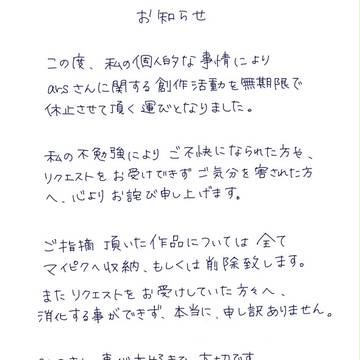 お知らせ
この度、私の個人的な事情により
arsさんに関する創作活動を無期限で
休止させて頂く運びとなりました。
私の不勉強により ご不快になられた方や、
リクエストを お受けできず ご気分を害された方
へ、心より お詫び申し上げます。
ご指摘 頂いた作品については 全て
マイピクへ収納、もしくは 削除致します。
また リクエストを お受けしていた方々へ、
消化する事ができず、本当に、申し訳ありません。